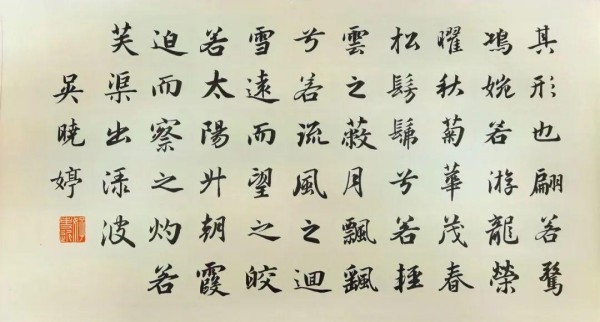 其形也翩若驚
鴻婉若游龍榮
曜秋菊華茂春
松髣髴兮若輕
雲之蔽月飄颻
兮若流風之迴
雪遠而望之皎
若太陽升朝霞
迫而察之灼若
芙渠出渌波
吳曉婷